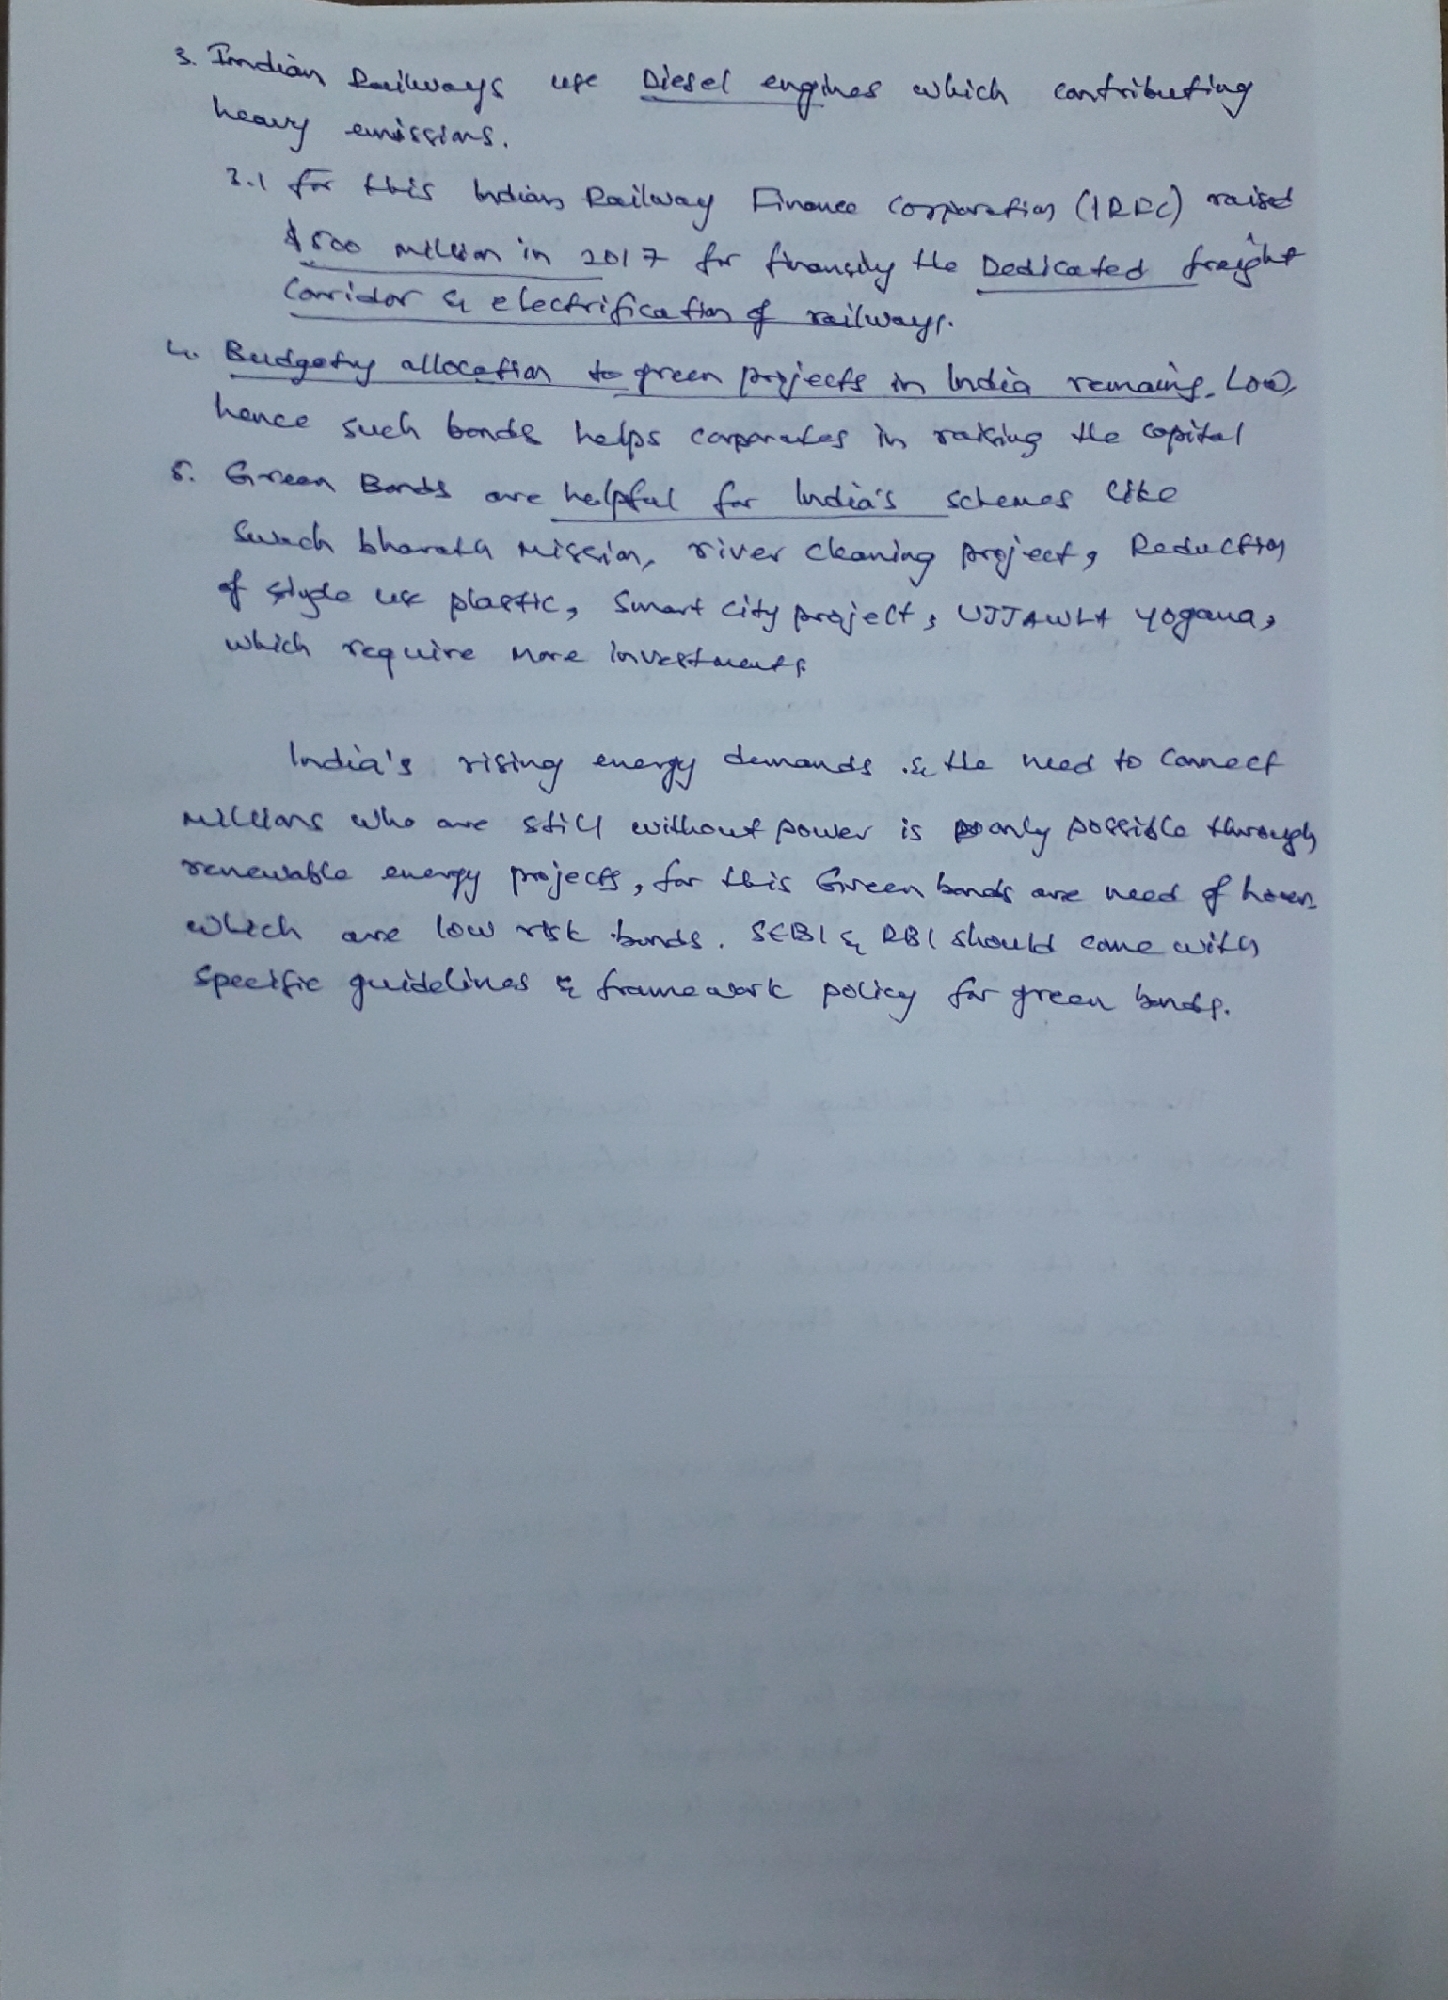 3. Indian Railways use Diesel engines which contributing
heavy emissions.
3.1 for this Indian Railway Finance Corporation (IRFC) raised
$500 million in 2017 for financing the Dedicated freight
Corridor & electrification of railways.
4. Budgetry allocation to green projects in India remains Low,
hence such bonds helps corporates in raising the capital
5. Green Bonds are helpful for India's schemes like
Swach bharata Mission, river cleaning project, Reduction
of single use plastic, Smart city project, UJJAWLA yogana,
which require more investments
India's rising energy demands & the need to connect
millions who are still without power is only possible through
renewable energy projects, for this Green bonds are need of hour
which are low risk bonds. SEBI & RBI should come with
specific guidelines & framework policy for green bonds.